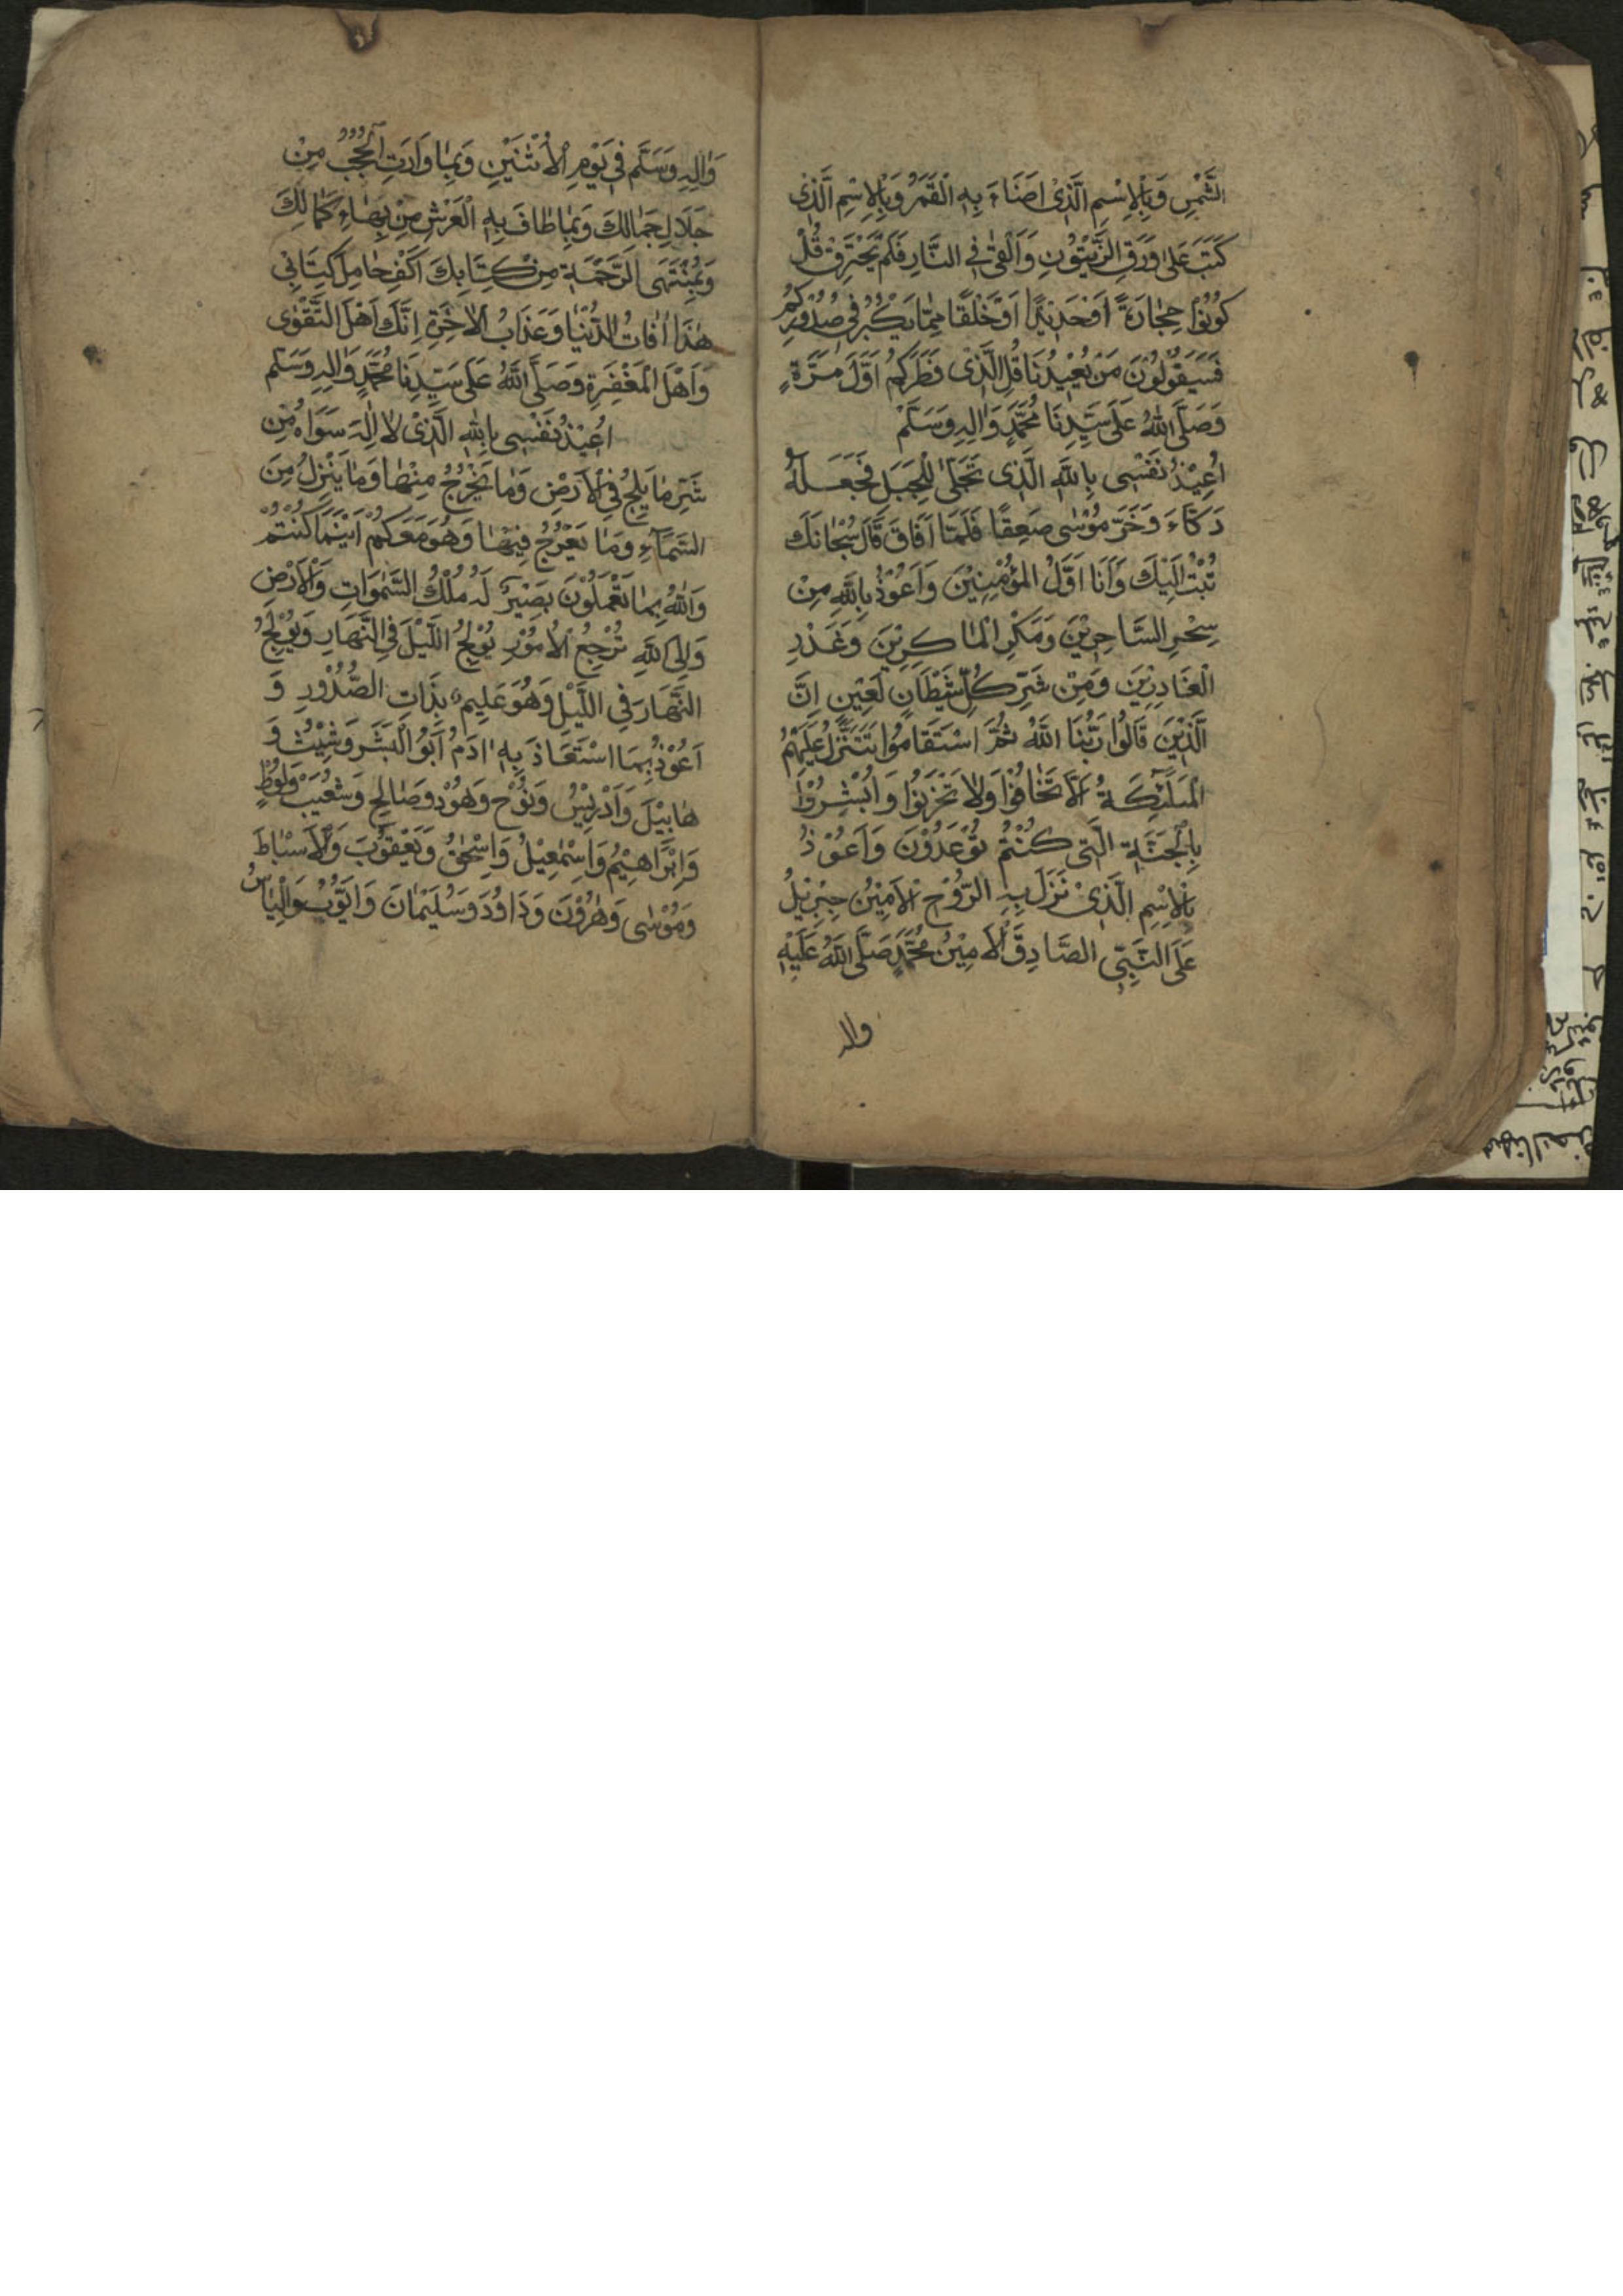 الشَّمْسِ وَبِالْاِسْمِ الَّذِىْ اَضَاءَ بِهِ الْقَمَرُ وَبِالْاِسْمِ الَّذِىْ
كَتَبَ عَلىٰ وَرَقِ الزَّيْتُوْنِ وَاَلْقىٰ فِى النَّارِ فَلَمْ يَحْتَرِقْ قُلْ
كُوْنُوْا حِجَارَةً اَوْحَدِيْدًا اَوْخَلْقًا مِمَّا يَكْبُرُ فِى صُدُوْرِكُمْ
فَسَيَقُوْلُوْنَ مَنْ يُعِيْدُنَا قُلِ الَّذِى فَطَرَكُمْ اَوَّلَ مَرَّةٍ
وَصَلَّى اللّٰهُ عَلىَ سَيِّدِنَا مُحَمَّدٍ وَاٰلِهِ وَسَلَّمْ
اُعِيْذُ نَفْسِى بِاللّٰهِ الَّذِى تَجَلّٰى لِلْجَبَلِ فَجَعَلَهُ
دَكَّاءَ وَخَرَّ مُوْسٰى صَعِقًا فَلَمَّا اَفَاقَ قَالَ سُبْحَانَكَ
تُبْتُ اِلَيْكَ وَاَنَا اَوَّلُ الْمُؤْمِنِيْنَ وَاَعُوْذُ بِاللّٰهِ مِنْ
سِحْرِ السَّاحِرِيْنَ وَمَكْرِ الْمَاكِرِيْنَ وَغَدْرِ
الْغَادِرِيْنَ وَمِنْ شَرِّ كُلِّ شَيْطَانٍ لَعِيْنٍ اِنَّ
الَّذِيْنَ قَالُوْا رَبُّنَا اللّٰهُ ثُمَّ اسْتَقَامُوْا تَتَنَزَّلُ عَلَيْهِمُ
الْمَلٰئِكَةُ اَلَّا تَخَافُوْا وَلَا تَحْزَنُوْا وَاَبْشِرُوْا
بِالْجَنَّةِ الَّتِى كُنْتُمْ تُوْعَدُوْنَ وَاَعُوْذُ
بِالْاِسْمِ الَّذِىْ نَزَلَ بِهِ الرُّوْحُ الْاَمِيْنُ جِبْرِيْلُ
عَلَى النَّبِىِّ الصَّادِقِ الْاَمِيْنِ مُحَمَّدٍ صَلَّى اللّٰهُ عَلَيْهِ
واله
وَاٰلِهِ وَسَلَّم فِى يَوْمِ الْاِثْنَيْنِ وَبِمَا وَارَتِ الْحُجُبُ مِنْ
جَلَالِ جَمَالِكَ وَبِمَا طَافَ بِهِ الْعَرْشِ مِنْ بِهَاءِ كَمَالِكَ
وَبِمُنْتَهَى الرَّحْمَةِ مِنْ كِتَابِكَ اَكْفِ حَامِلَ كِتَابِى
هٰذَا اٰفَاتُ الدُّنْيَا وَعَذَابُ الْاٰخِرَةِ اِنَّكَ اَهْلَ التَّقْوٰى
وَاَهْلَ الْمَغْفِرَةِ وَصَلَّى اللّٰهُ عَلىَ سَيِّدِنَا مُحَمَّدٍ وَاٰلِهِ وَسَلَّم
اُعِيْذُ نَفْسِى بِاللّٰهِ الَّذِىْ لَا اِلٰهَ سَوَاهُ مِن
شَرِّ مَا يَلِجُ فِى الْاَرْضِ وَمَا يَخْرُجُ مِنْهَا وَمَا يَنْزِلُ مِنَ
السَّمَاءِ وَمَا يَعْرُجُ فِيْهَا وَهُوَ مَعَكُمْ اَيْنَمَا كُنْتُمْ
وَاللّٰهُ بِمَا تَعْمَلُوْنَ بَصِيْرٌ لَهُ مُلْكُ السَّمٰوَاتِ وَالْاَرْضِ
وَاِلَى اللّٰهِ تُرْجَعُ الْاُمُوْرِ يُوْلِجُ اللَّيْلَ فِى النَّهَارِ وَيُوْلِجُ
النَّهَارَ فِى اللَّيْلِ وَهُوَ عَلِيْمٌ بِذَاتِ الصُّدُوْرِ وَ
اَعُوْذُ بِمَا اسْتَعَاذَ بِهِ اٰدَمُ اَبُوْ الْبَشَرِ وَشِيْثُ وَ
هَابِيْلَ وَاَدْرِيْسُ وَنُوْحٍ وَهُوْدُ وَصَالِحٍ وَشُعَيْبُ وَلُوْطٍ
وَاِبْرَاهِيْمُ وَاِسْمٰعِيْلُ وَاِسْحٰقُ وَيَعْقُوْبَ وَالْاَسْبَاطَ
وَمُوْسٰى وَهٰرُوْنَ وَدَاوُدَ وَسُلَيْمَانَ وَاَيُّوْبُ وَاِلْيَاسُ